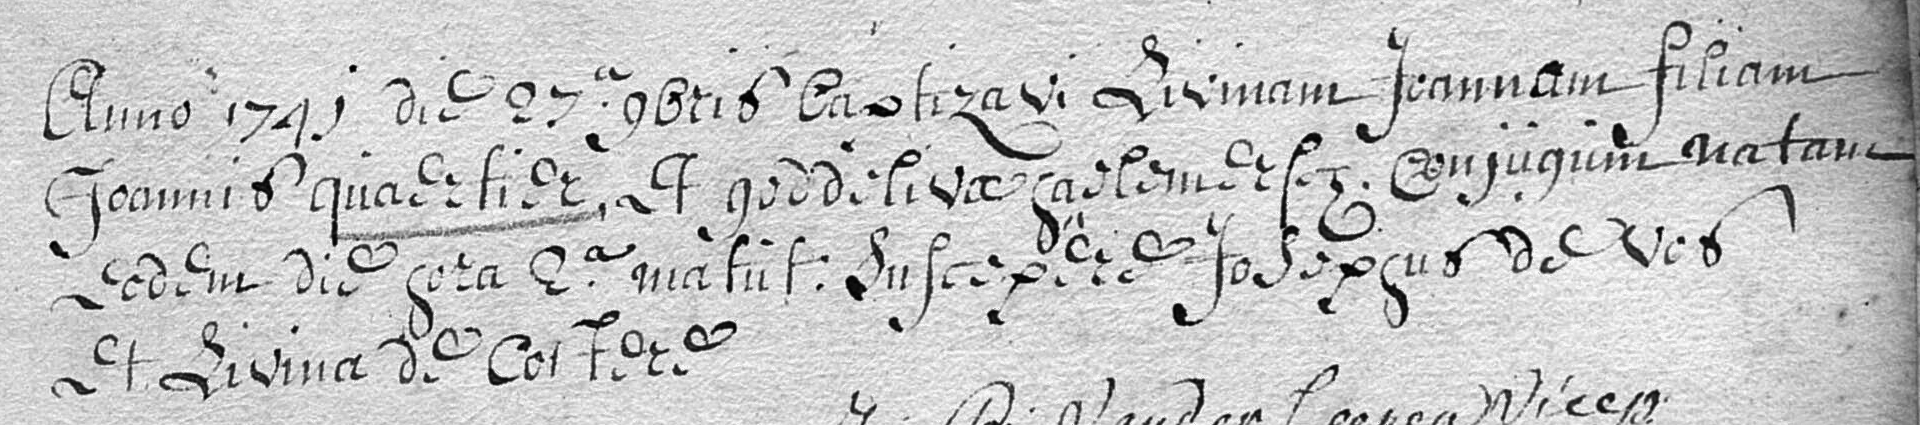 Anno 1741 die 27.a 9bris baptizavi Livinam Joannam filiam
Joannis quaetier, et godelivæ haelemeersch. Conjugum natam
eodem die hora 2.a matut. Suscepere Josephus de vos
et Livina de Cortere
Vander Vicep.